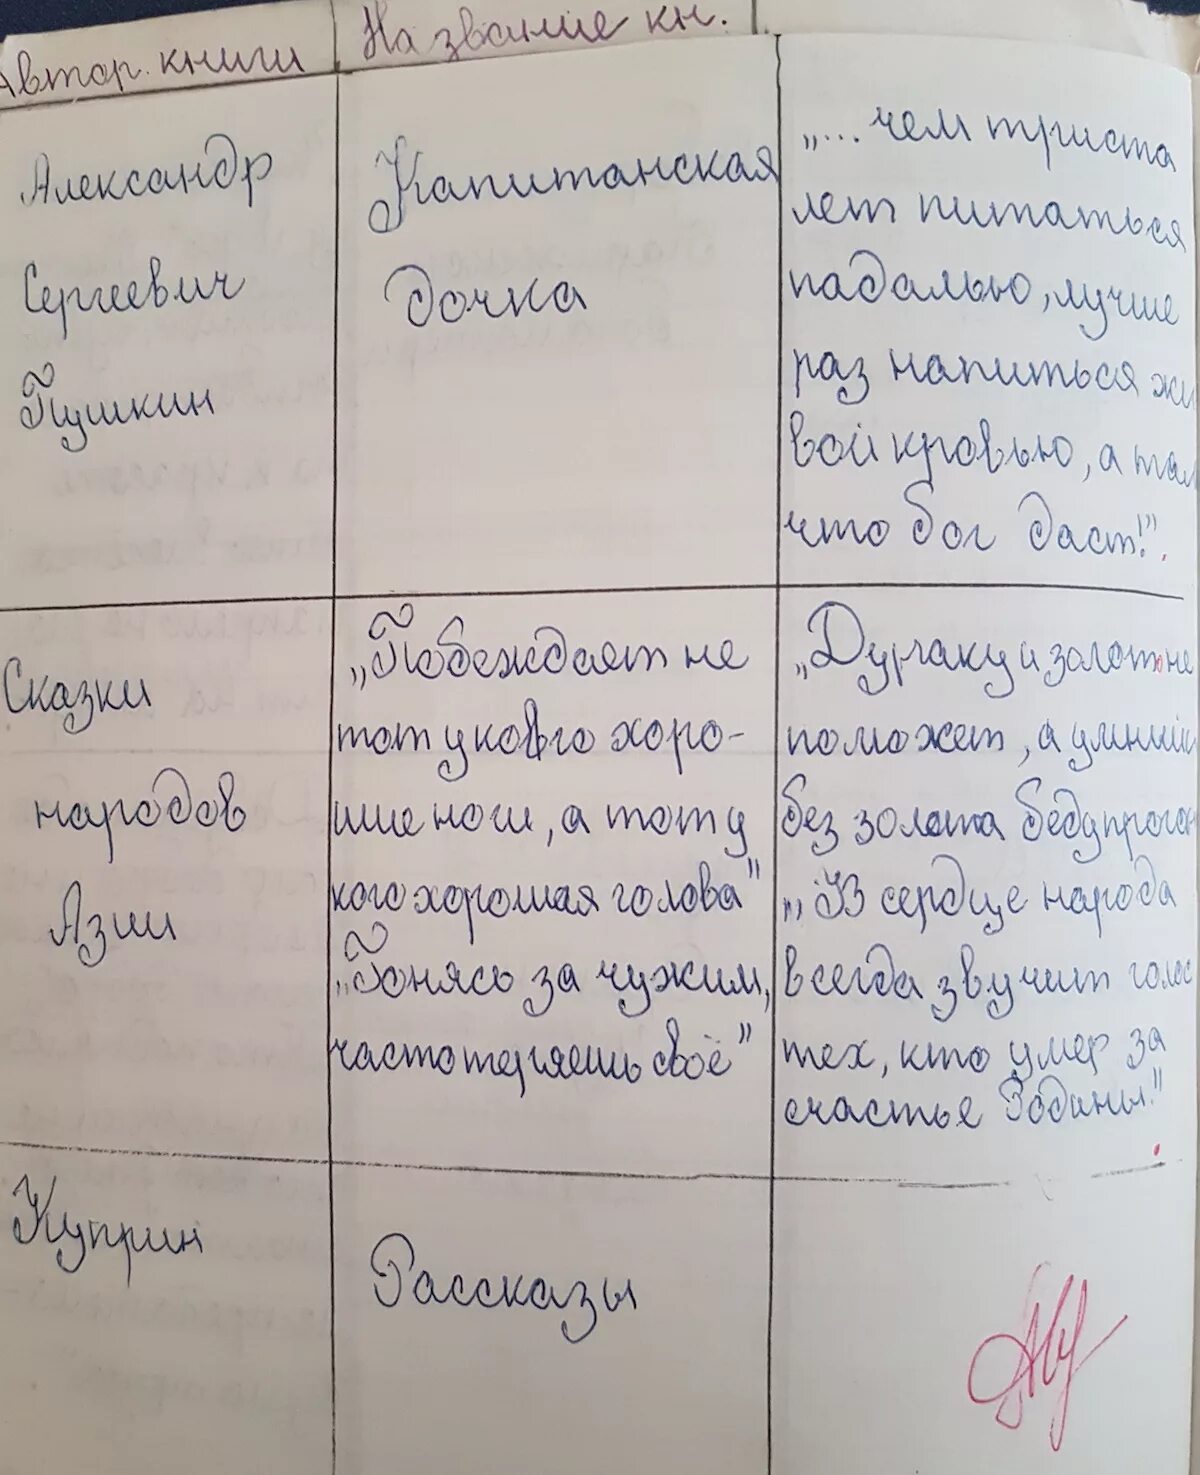 Автор. книги
Название кн.
Александр
Сергеевич
Пушкин
Капитанская
дочка
„...чем триста
лет питаться
падалью, лучше
раз напиться жи
вой кровью, а там
что бог даст!".
Сказки
народов
Азии
„Побеждает не
тот у кового хоро-
шие ноги, а тот у
кого хорошая голова"
„Гонясь за чужим,
часто теряешь своё"
„Дураку и золото не
поможет, а умный
без золота беду прогон
„В сердце народа
всегда звучит голос
тех, кто умер за
счастье Родины!"
Куприн
Рассказы